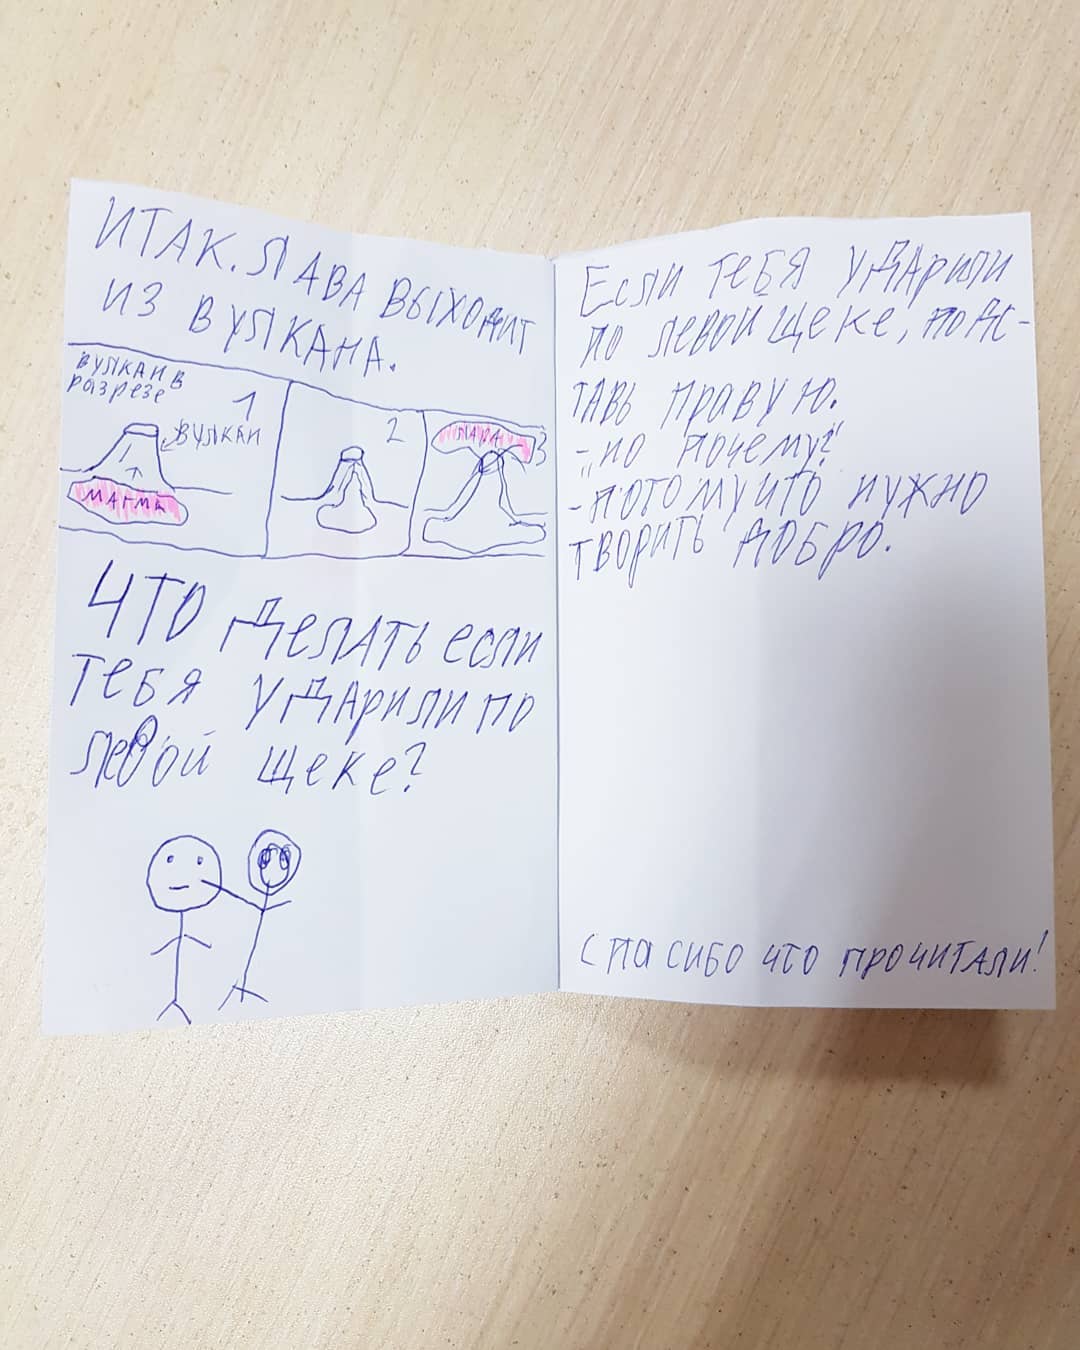 ИТАК. ЛАВА ВЫХОДИТ
ИЗ ВУЛКАНА.
ВУЛКАН В
разрезе
1
ВУЛКАН
МАГМА
2
ЛАВА
3
ЧТО ДЕЛАТЬ если
тебя УДАРИЛИ ПО
левой щеке?
Если тебя УДАрили
по левой щеке,подс-
тавь правую.
- „но почему?“
- потому что нужно
творить добро.
спасибо что прочитали!